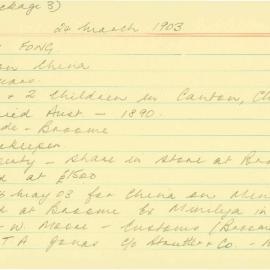 ckage 3)
24 March 1903
FONG
on China
ears
+ 2 children in Canton, Ch
ied Aust - 1890.
de - Broome
keeper
erty - share in store at Bro
d at £1500
May 03 for China on Min
d at Broome by Minilya in
- W. Moore - Customs (Broome
T A Jones c/o Stautter + Co -